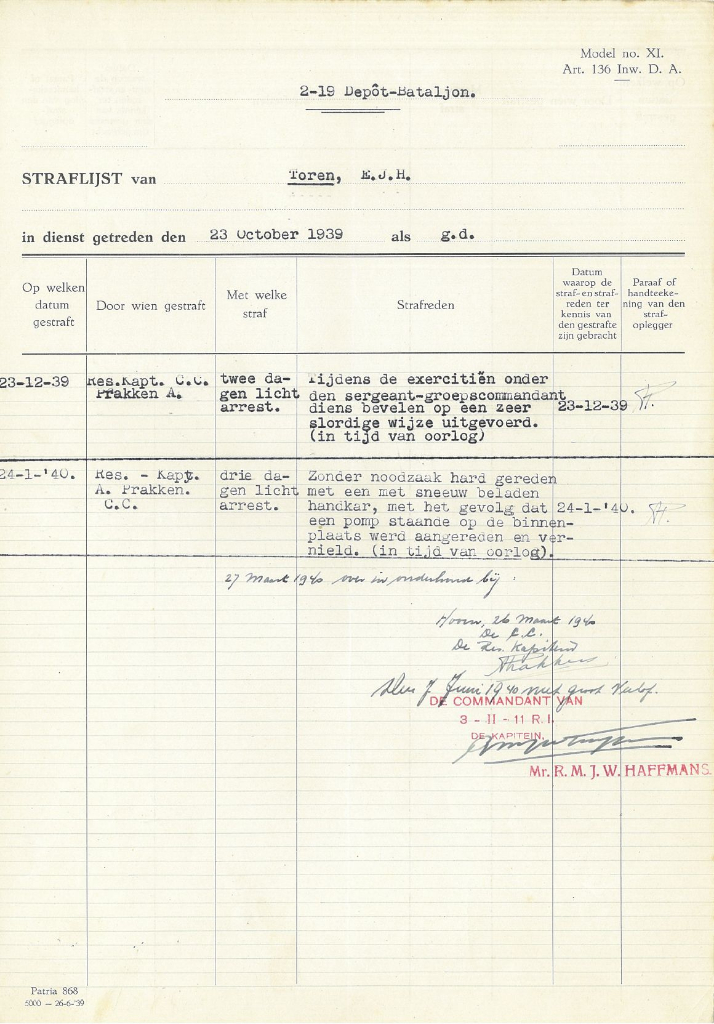 Model no. XI.
Art. 136 Inw. D. A.
2-19 Depôt-Bataljon.
STRAFLIJST van Toren, E.J.H.
in dienst getreden den 23 October 1939 als g.d.
Op welken datum gestraft
Door wien gestraft
Met welke straf
Strafreden
Datum waarop de straf- en straf-reden ter kennis van den gestrafte zijn gebracht
Paraaf of handteeke-ning van den straf-oplegger
23-12-39
Res.Kapt. C.C.
Prakken A.
twee da-
gen licht
arrest.
Tijdens de exercitiën onder
den sergeant-groepscommandant
diens bevelen op een zeer
slordige wijze uitgevoerd.
(in tijd van oorlog)
23-12-39
24-1-'40.
Res. - Kapt.
A. Prakken.
C.C.
drie da-
gen licht
arrest.
Zonder noodzaak hard gereden
met een met sneeuw beladen
handkar, met het gevolg dat
een pomp staande op de binnen-
plaats werd aangereden en ver-
nield. (in tijd van oorlog).
24-1-'40.
27 Maart 1940 over in onderhoud bij :
Hoorn, 26 Maart 1940
De C.C.
De Res. Kapitein
7 Juni 1940 met groot Verlof.
DE COMMANDANT VAN
3 - II - 11 R.I.
DE KAPITEIN,
Mr. R. M. J. W. HAFFMANS.
Patria 868
5000 — 26-6-'39